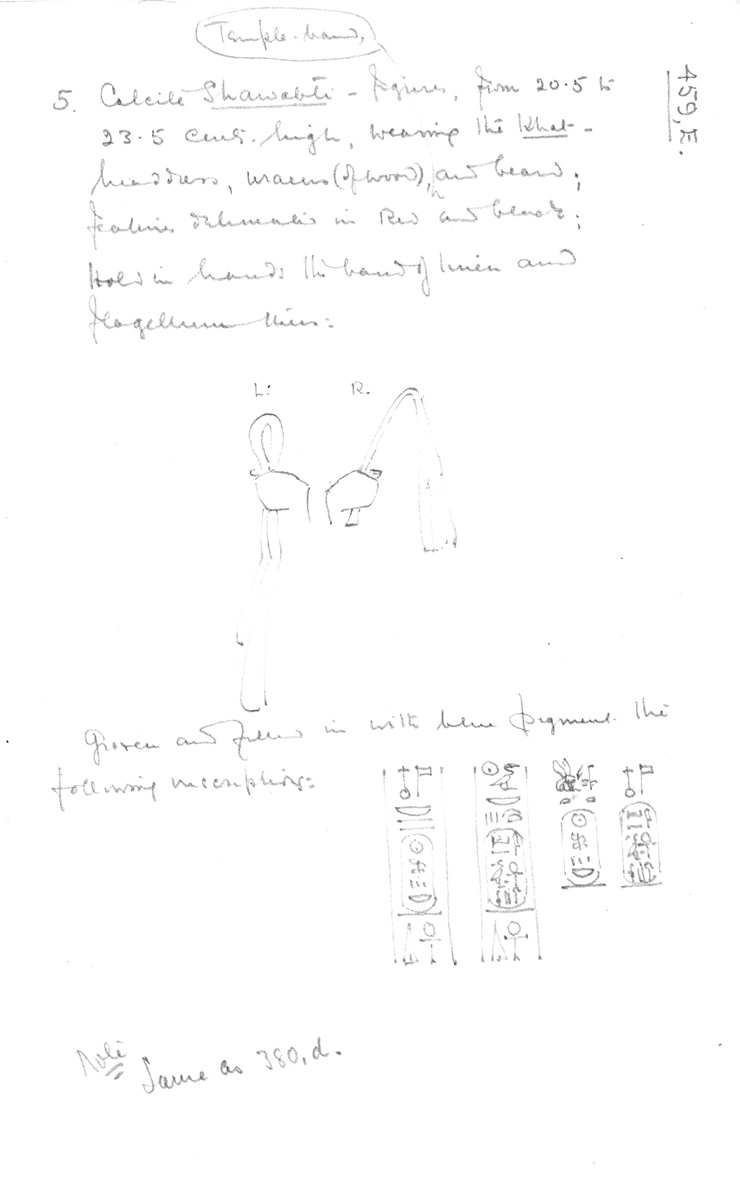 Temple-band,
459, E.
5. Calcite Shawabti - figures, from 20.5 to
23.5 cent. high, wearing the Khat-
headdress, uraeus (of wood), and beard;
features delineated in Red and black;
Hold in hands the band of linen and
flagellum thus:
L: R.
Graven and filled in with blue pigment the
following inscriptions:
Note Same as 380, d.